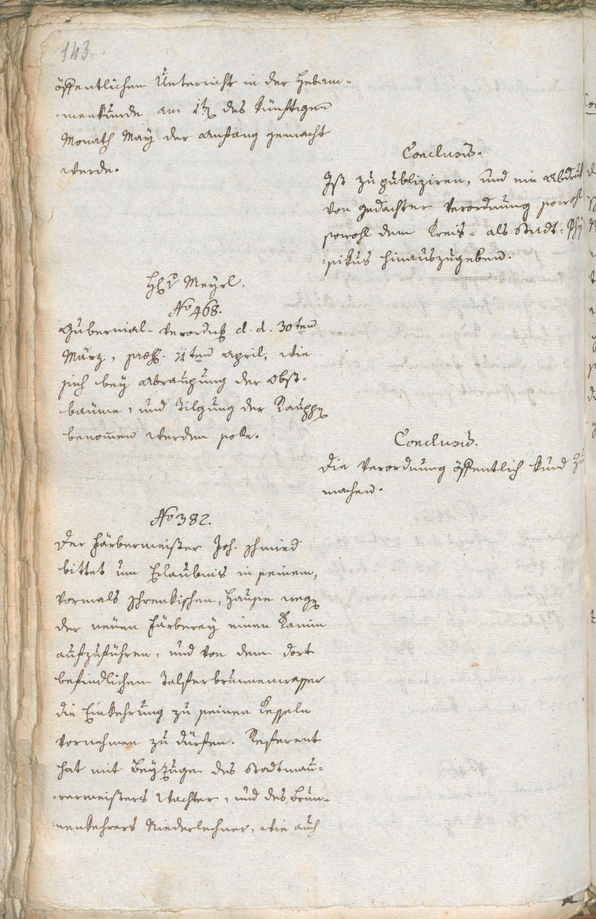 143.
öffentlichen Unterricht in der Hebam-
menkunde am 1t des künftigen
Monath May der Anfang gemacht
werde.
Conclusis.
Ist zu publiziren, und ein Abdruk
von gedachter Verordnung sowohl
sowohl dem Kreis- als Stadt-Phÿ
sikus hinauszugeben.
H: Meyrl.
No 468.
Gubernial-Verordg d. d. 30ten
März, præs. 21ten April, wie
sich bey Abraupung der Obst-
bäume, und Tilgung der Rauppen
benommen werden solle.
Conclusis.
Die Verordnung öffentlich kund zu
machen.
No 382.
Der Färbermeister Joh. Schmied
bittet um Erlaubnis in seinem,
vormals Schrenkischen, Hause wegen
der neuen Färberey einen Kamin
aufzuführen, und von dem dort
befindlichen Talferbrunnenwasser
die Einkehrung zu seinen Kesseln
vornehmen zu dürfen. Referent
hat mit Beyzuge des Stadtmau-
rermeisters Wachter, und des Brun-
nenkehrers Niederlechner, wie auch